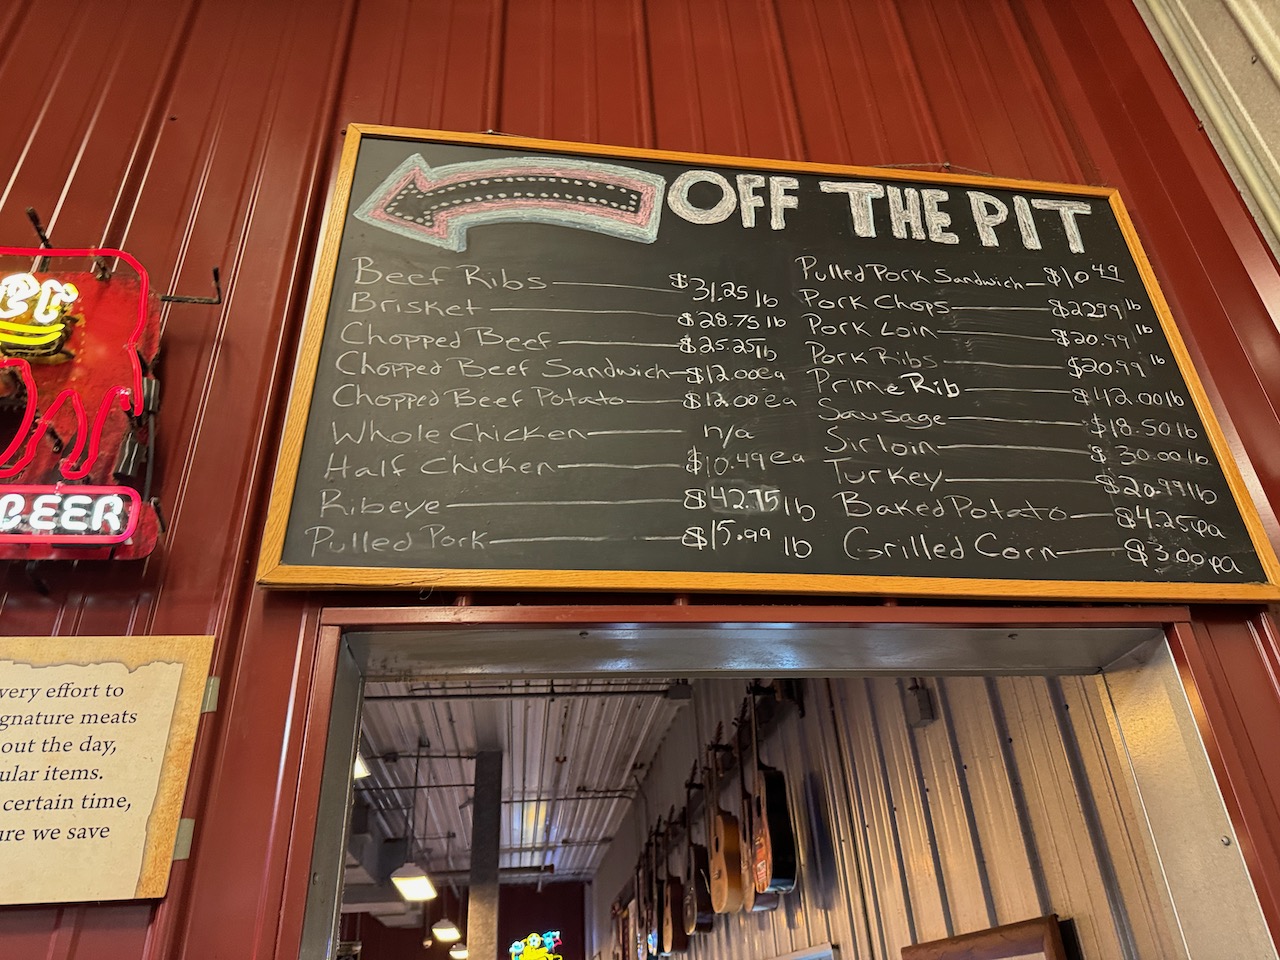 OFF THE PIT
Beef Ribs $31.25 lb
Brisket $28.75 lb
Chopped Beef $25.25 lb
Chopped Beef Sandwich $12.00 ea
Chopped Beef Potato $12.00 ea
Whole Chicken n/a
Half Chicken $10.49 ea
Ribeye $42.75 lb
Pulled Pork $15.99 lb
Pulled Pork Sandwich $10.49
Pork Chops $22.99 lb
Pork Loin $20.99 lb
Pork Ribs $20.99 lb
Prime Rib $42.00 lb
Sausage $18.50 lb
Sirloin $30.00 lb
Turkey $20.99 lb
Baked Potato $4.25 ea
Grilled Corn $3.00 ea
BEER
very effort to
gnature meats
out the day,
ular items.
certain time,
ure we save